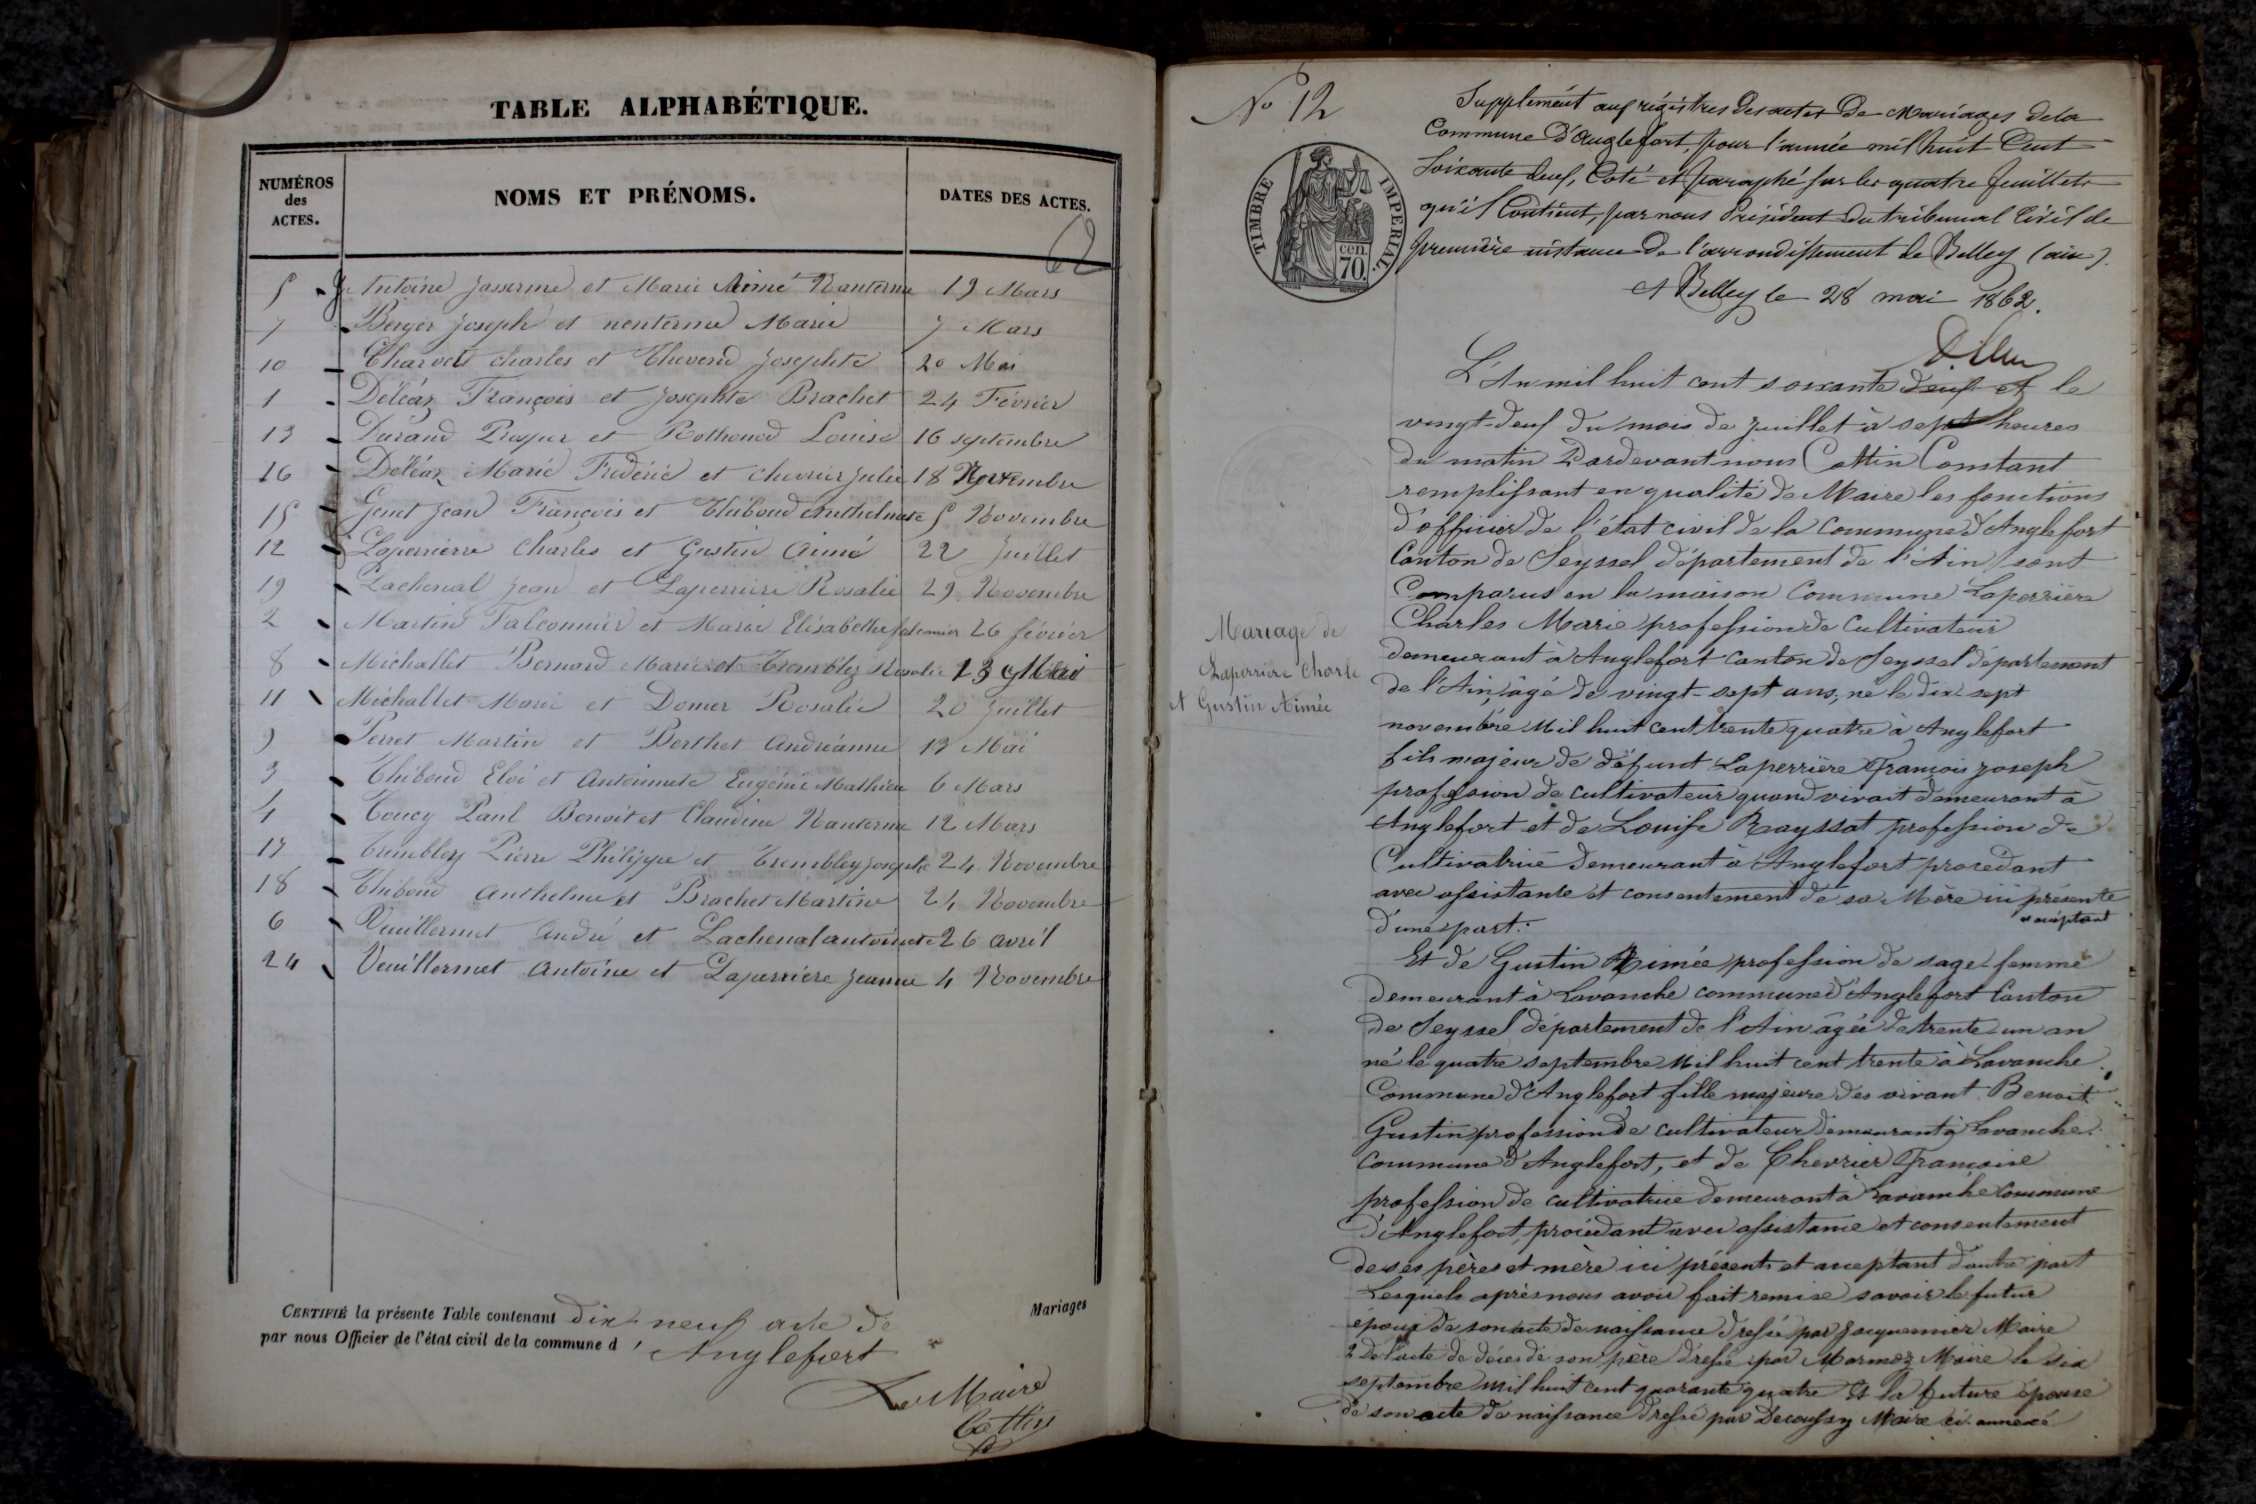 TABLE ALPHABÉTIQUE.
NUMÉROS des ACTES.
NOMS ET PRÉNOMS.
DATES DES ACTES.
62
5 Antoine Janerme et Marie Aimé Nanterme 19 Mars
7 Berger Joseph et nenterme Marie 7 Mars
10 Charvet charles et Thevend Josephte 20 Mai
1 Déléaz François et Josephte Brachet 24 Février
13 Durand Prosper et Rothonod Louise 16 septembre
16 Déléaz Marie Frédéric et chevrier Julie 18 Novembre
15 Genet Jean François et Thiboud Anthelmete 5 Novembre
12 Laperrierre Charles et Gustin Aimé 22 Juillet
19 Lachenal Jean et Laperriere Rosalie 29 Novembre
2 Martin Falconnier et Marie Elisabethe 26 février
8 Michallet Bernard Marie et Trembley Rosalie 13 Mai
11 Michallet Marie et Domer Rosalie 20 Juillet
9 Perret Martin et Berthet Andréanne 13 Mai
3 Thiboud Eloi et Antoinnete Eugénie Mathieu 6 Mars
4 Toucy Paul Benoit et Claudine Nanterme 12 Mars
17 Trembley Pierre Philippe et Trembley Josephte 24 Novembre
18 Thiboud Anthelme et Brachet Martine 24 Novembre
6 Vuillermet André et Lachenal antoinete 26 avril
24 Vuillermet Antoine et Laperriere Jeanne 4 Novembre
CERTIFIÉ la présente Table contenant dix-neuf acte de Mariages
par nous Officier de l'état civil de la commune d'Anglefort
Le Maire
Cottin
No 12
TIMBRE IMPERIAL.
70 cen
Supplément aux régistres des actes de Mariages de la
Commune d'Anglefort, pour l'année mil huit Cent
Soixante deux, Coté et paraphé sur les quatre feuillets
qu'il Contient, par nous Président du tribunal Civil de
première instance de l'arrondissement de Belley (ain).
A Belley le 28 mai 1862.
L'An mil huit cent soixante deux et le
vingt-deux du mois de Juillet à sept heures
du matin Pardevant nous Cottin Constant
remplissant en qualité de Maire les fonctions
d'officier de l'état civil de la Commune d'Anglefort
Canton de Seyssel département de l'Ain sont
Comparus en la maison Commune Laperrière
Charles Marie profession de Cultivateur
demeurant à Anglefort Canton de Seyssel département
de l'Ain, âgé de vingt-sept ans, né le dix sept
novembre Mil huit cent trente quatre à Anglefort
fils majeur de défunt Laperrière François Joseph
profession de cultivateur quand vivait demeurant à
Anglefort et de Louise Rayssat profession de
Cultivatrice demeurant à Anglefort procédant
avec assistante et consentement de sa Mère ici présente
et acceptant
d'une part.
Et de Gustin Aimée profession de sage-femme
demeurant à Lavanche commune d'Anglefort Canton
de Seyssel département de l'Ain âgée de trente-un an
né le quatre septembre Mil huit cent trente à Lavanche
Commune d'Anglefort fille majeure des vivant Benoit
Gustin profession de cultivateur demeurant à Lavanche
Commune d'Anglefort, et de Chevrier Françoise
profession de cultivatrice demeurant à Lavanche Commune
d'Anglefort, procédant avec assistance et consentement
de ses pères et mère ici présents et acceptant d'autre part
Lesquels après nous avoir fait remise savoir le futur
époux de son acte de naissance dressé par Jacquemier Maire
2 De l'acte de décès de son père dressé par Marmoz Maire le six
septembre Mil huit cent quarante quatre Et la future épouse
de son acte de naissance dressé par Decoussy Maire ci-annexé
Mariage de
Laperriere Charle
et Gustin Aimée